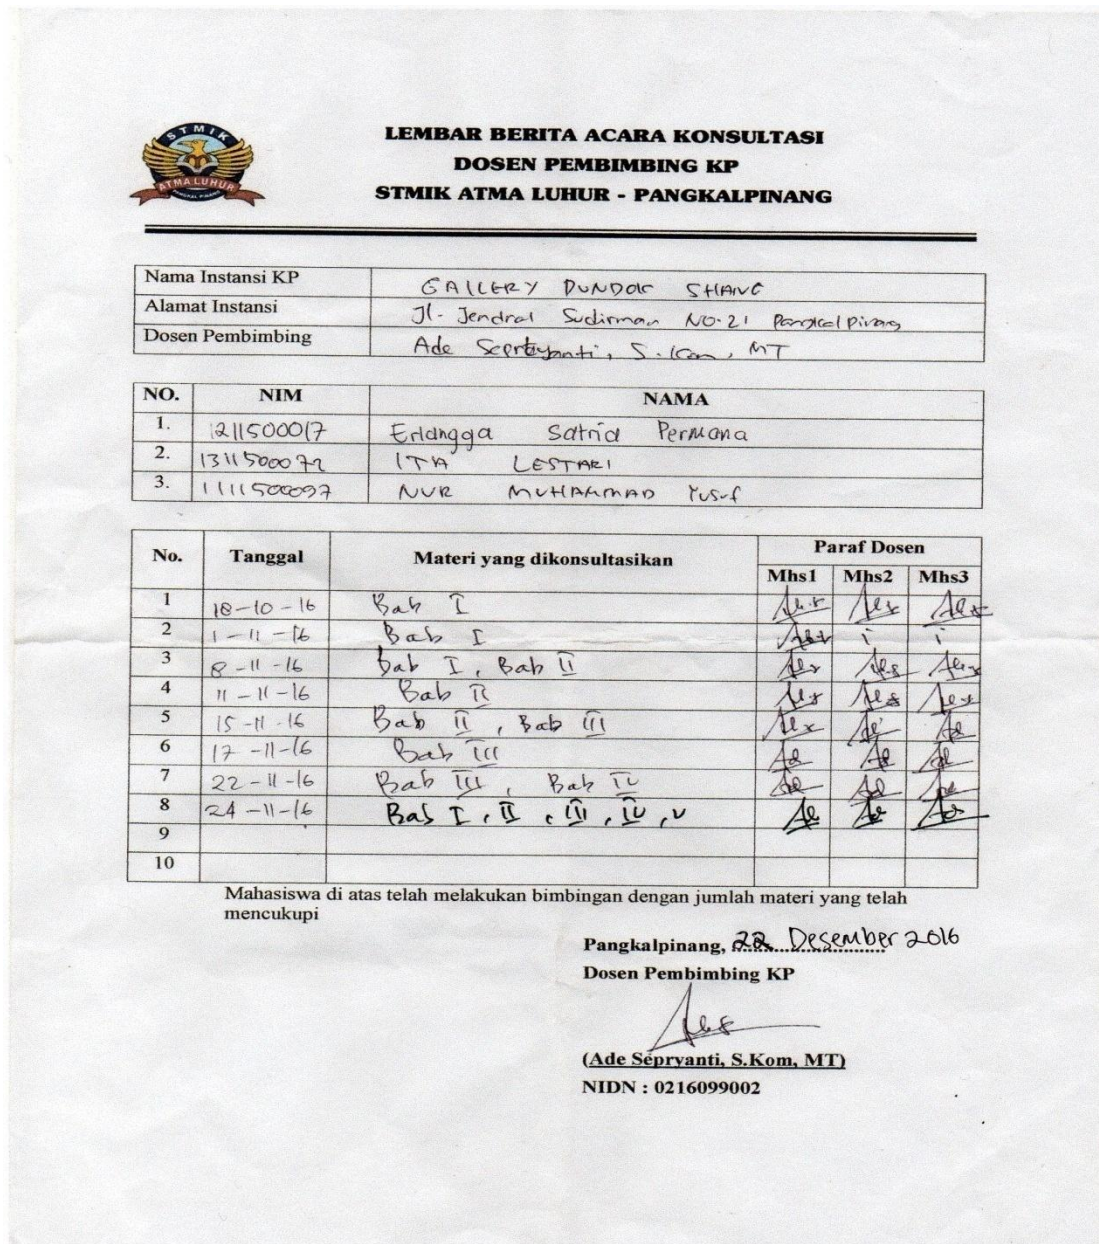 STMIK
ATMA LUHUR
PANGKAL PINANG
LEMBAR BERITA ACARA KONSULTASI
DOSEN PEMBIMBING KP
STMIK ATMA LUHUR - PANGKALPINANG
Nama Instansi KP GALLERY DUNDOK SHANG
Alamat Instansi Jl. Jendral Sudirman NO.21 Pangkalpinang
Dosen Pembimbing Ade Septryanti, S.Kom, MT
NO. NIM NAMA
1. 1211500017 Erlangga Satria Permana
2. 1311500072 ITA LESTARI
3. 1111500097 NUR MUHAMMAD Yusuf
No. Tanggal Materi yang dikonsultasikan Paraf Dosen
Mhs1 Mhs2 Mhs3
1 18-10-16 Bab I
2 1-11-16 Bab I
3 8-11-16 Bab I, Bab II
4 11-11-16 Bab II
5 15-11-16 Bab II, Bab III
6 17-11-16 Bab III
7 22-11-16 Bab III, Bab IV
8 24-11-16 Bab I, II, III, IV, V
9
10
Mahasiswa di atas telah melakukan bimbingan dengan jumlah materi yang telah
mencukupi
Pangkalpinang, 22 Desember 2016
Dosen Pembimbing KP
(Ade Sepryanti, S.Kom, MT)
NIDN : 0216099002